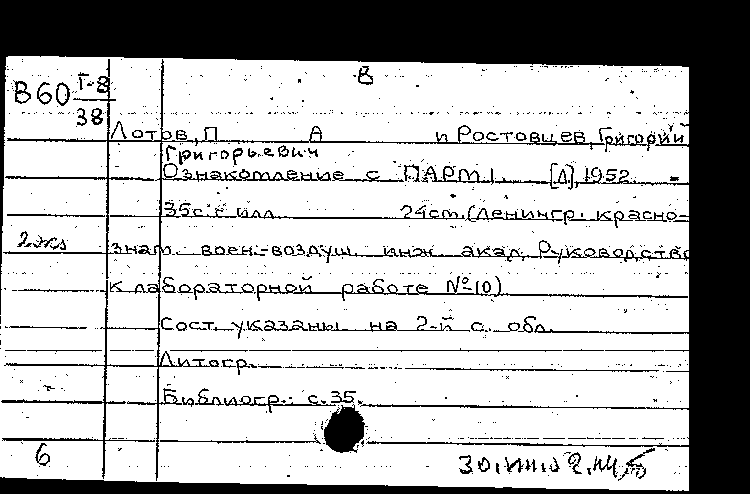 В
В60 I-8
38
Лотов, П А и Ростовцев, Григорий
Григорьевич
Ознакомление с ПАРМ1. [Л], 1952. -
35с с илл. 24cm. (Ленингр. красно-
2 экз
знам. воен.-воздуш. инж. акад. Руководство
к лабораторной работе №10)
Сост. указаны на 2-й с. обл.
Литогр.
Библиогр.: с. 35.
6